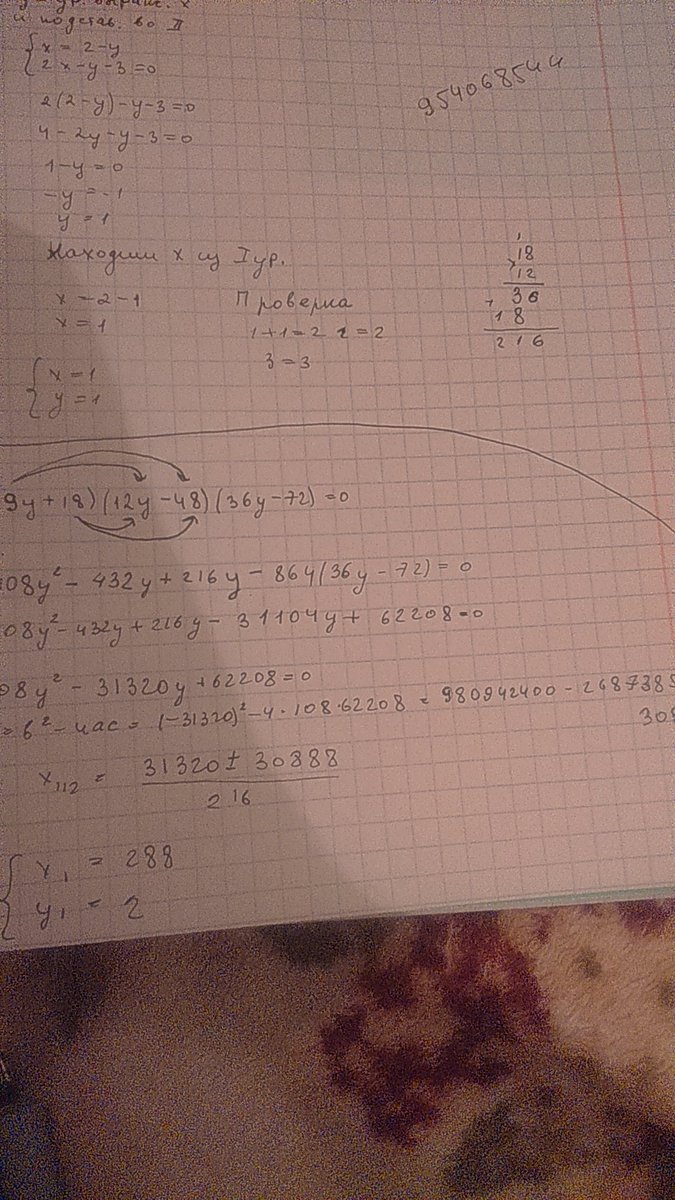 и подстав. во II
{ x = 2 - y
2x - y - 3 = 0
2(2 - y) - y - 3 = 0
4 - 2y - y - 3 = 0
1 - y = 0
-y = -1
y = 1
954068544
Находим x из I ур.
x = 2 - 1
x = 1
{ x = 1
y = 1
Проверка
1 + 1 = 2 2 = 2
3 = 3
18
× 12
36
+ 18
216
9y + 18)(12y - 48)(36y - 72) = 0
08y² - 432y + 216y - 864(36y - 72) = 0
08y² - 432y + 216y - 31104y + 62208 = 0
08y² - 31320y + 62208 = 0
= b² - 4ac = (-31320)² - 4 · 108 · 62208 = 980942400 - 2687385
308
x₁₁₂ = 31320 ± 30888
216
{ x₁ = 288
y₁ = 2